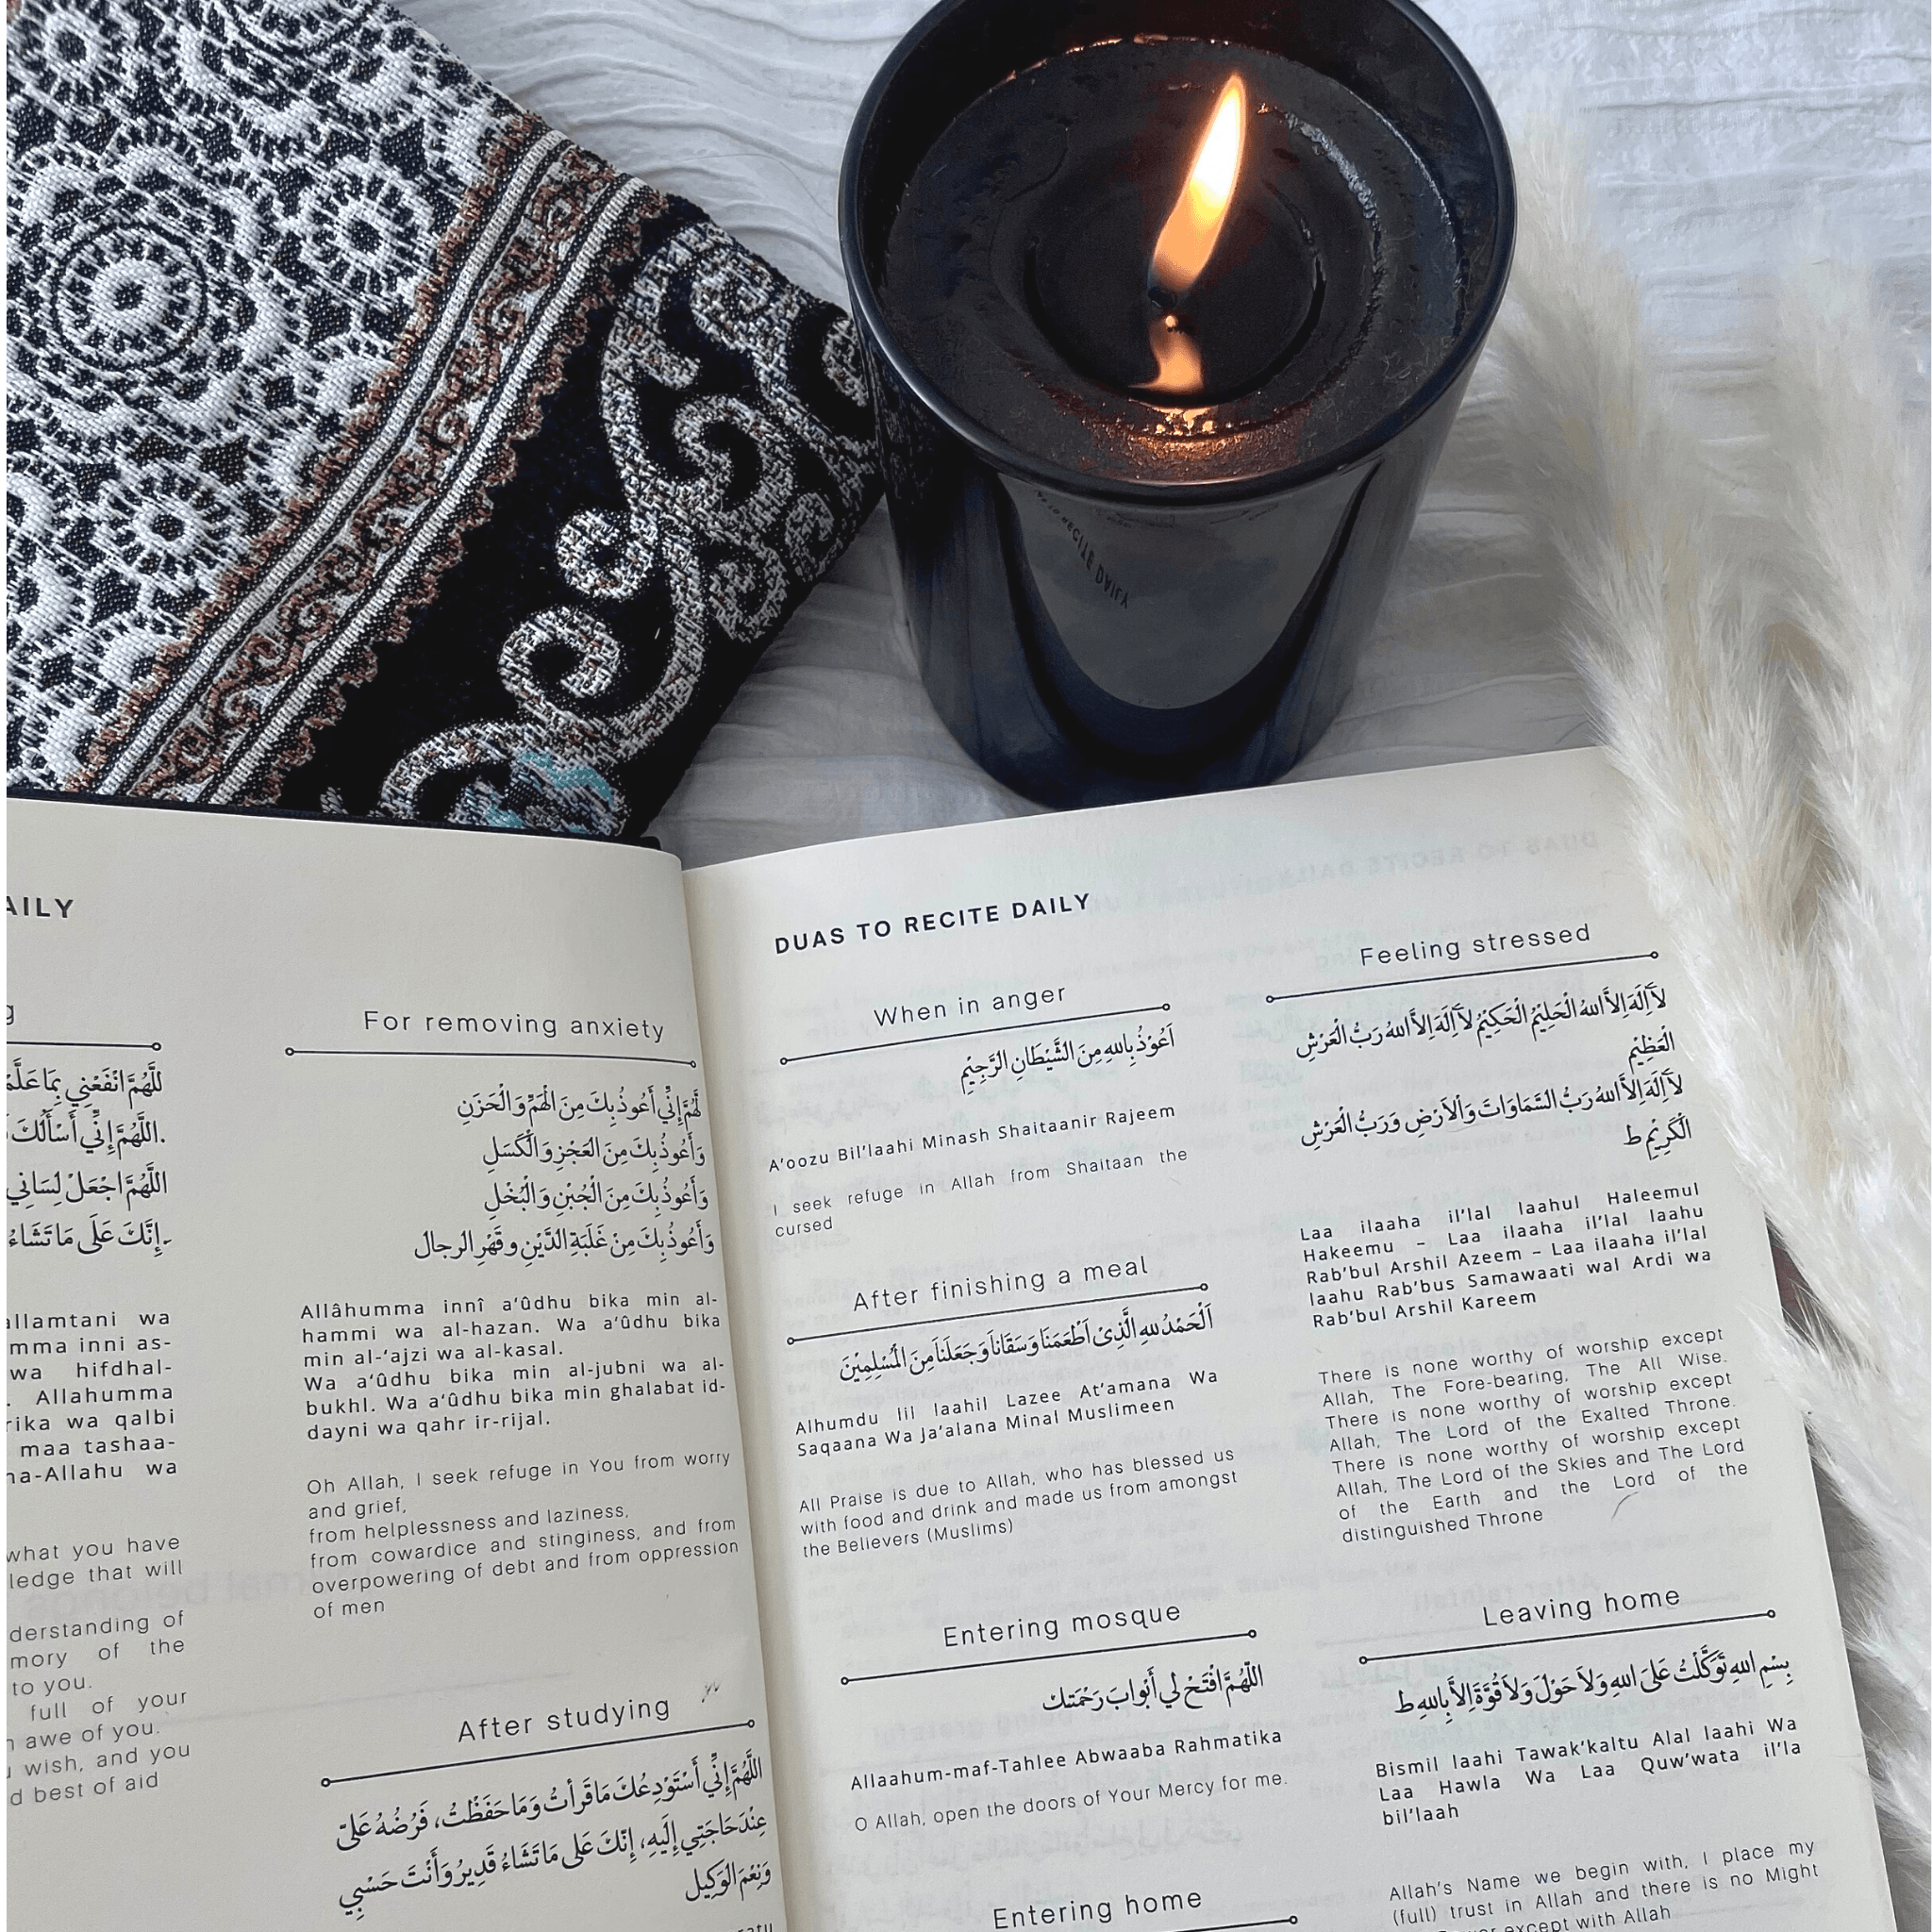 AILY
للهم انفعني بما علم
.اللهم إني أسألك
اللهم اجعل لساني
.إنك على ما تشاء
allamtani wa
mma inni as-
wa hifdhal-
. Allahumma
rika wa qalbi
maa tashaa-
na-Allahu wa
what you have
ledge that will
derstanding of
mory of the
to you.
full of your
n awe of you.
u wish, and you
d best of aid
For removing anxiety
لَّهُمَّ إِنِّي أَعُوذُ بِكَ مِنَ الْهَمِّ وَالْحَزَنِ
وَأَعُوذُ بِكَ مِنَ العَجْزِ وَالْكَسَلِ
وَأَعُوذُ بِكَ مِنَ الْجُبْنِ وَالْبُخْلِ
وَأَعُوذُ بِكَ مِنْ غَلَبَةِ الدَّيْنِ وقَهْرِ الرجال
Allâhumma innî a‘ûdhu bika min al-
hammi wa al-hazan. Wa a‘ûdhu bika
min al-‘ajzi wa al-kasal.
Wa a‘ûdhu bika min al-jubni wa al-
bukhl. Wa a‘ûdhu bika min ghalabat id-
dayni wa qahr ir-rijal.
Oh Allah, I seek refuge in You from worry
and grief,
from helplessness and laziness,
from cowardice and stinginess, and from
overpowering of debt and from oppression
of men
After studying
اللَّهُمَّ إِنِّي أَسْتَوْدِعُكَ مَا قَرَأتُ وَمَا حَفَظْتُ، فَرُضْهُ عَلىّ
عِنْدَ حَاجَتِي إِلَيهِ، إِنَّكَ عَلى مَا تَشَاءُ قَدِيرُ وَأَنْتَ حَسْبِي
وَنِعْمَ الوَكِيل
DUAS TO RECITE DAILY
When in anger
اَعُوْذُ بِاللهِ مِنَ الشَّيْطَانِ الرَّجِيْمِ
A’oozu Bil’laahi Minash Shaitaanir Rajeem
I seek refuge in Allah from Shaitaan the
cursed
After finishing a meal
اَلْحَمْدُ للهِ الَّذِىْ اَطْعَمَنَا وَسَقَانَا وَجَعَلَنَا مِنَ الْمُسْلِمِيْنَ
Alhumdu lil laahil Lazee At’amana Wa
Saqaana Wa Ja’alana Minal Muslimeen
All Praise is due to Allah, who has blessed us
with food and drink and made us from amongst
the Believers (Muslims)
Entering mosque
اللّهُمَّ افْتَحْ لِي أَبْوابَ رَحْمَتك
Allaahum-maf-Tahlee Abwaaba Rahmatika
O Allah, open the doors of Your Mercy for me.
Entering home
Feeling stressed
لَآ اِلَهَ اِلاَّ اللهُ الْحَلِيْمُ الْحَكِيْمُ لَآ اِلَهَ اِلاَّ اللهُ رَبُّ الْعَرْشِ
الْعَظِيْمِ
لَآ اِلَهَ اِلاَّ اللهُ رَبُّ السَّمَاوَاتَ وَالْاَرْضِ وَرَبُّ الْعَرْشِ
الْكَرِيْمِ ط
Laa ilaaha il’lal laahul Haleemul
Hakeemu – Laa ilaaha il’lal laahu
Rab’bul Arshil Azeem – Laa ilaaha il’lal
laahu Rab’bus Samawaati wal Ardi wa
Rab’bul Arshil Kareem
There is none worthy of worship except
Allah, The Fore-bearing, The All Wise.
There is none worthy of worship except
Allah, The Lord of the Exalted Throne.
There is none worthy of worship except
Allah, The Lord of the Skies and The Lord
of the Earth and the Lord of the
distinguished Throne
Leaving home
بِسْمِ اللهِ تَوَكَّلْتُ عَلَىَ اللهِ وَلاَ حَوْلَ وَلاَ قُوَّةَ اِلاَّ بِاللهِ ط
Bismil laahi Tawak’kaltu Alal laahi Wa
Laa Hawla Wa Laa Quw’wata il’la
bil’laah
Allah’s Name we begin with, I place my
(full) trust in Allah and there is no Might
except with Allah